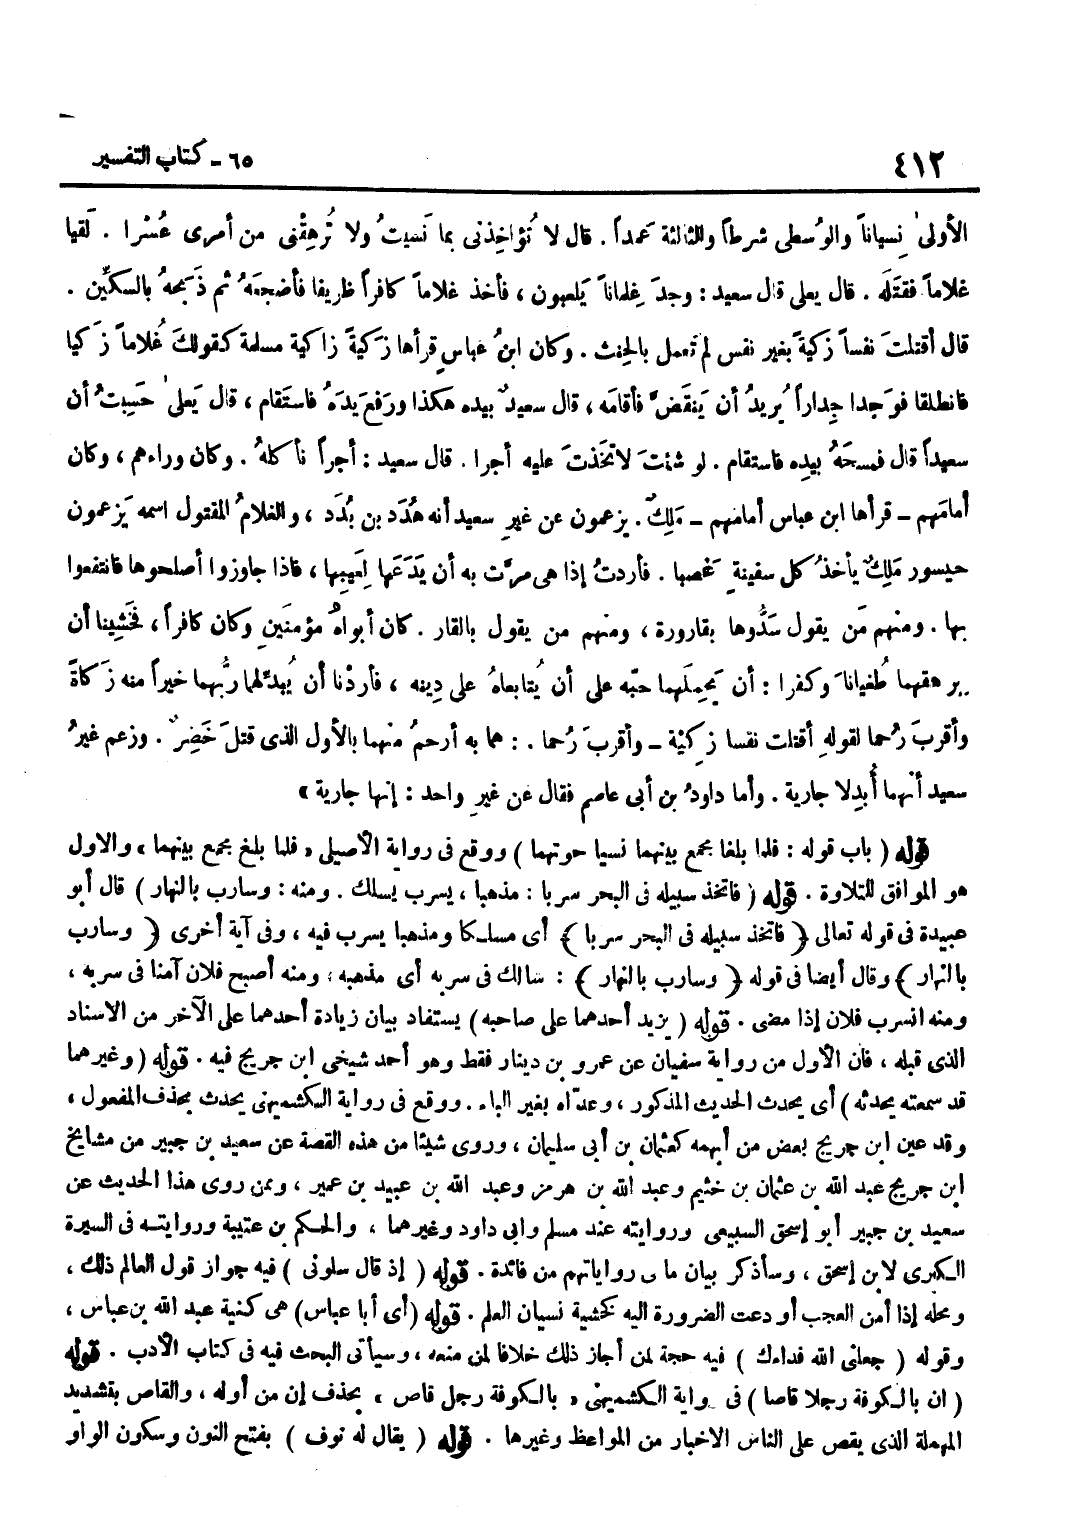 ٤١٢
٦٥ - كتاب التفسير
الأولىٰ نِسياناً والوُسطى شرطاً والثالثة عَمداً . قال لا تُؤاخِذنى بما نَسيتُ ولا تُرهِقْنى من أمرى عُسْرا . لَقيا
غلاماً فقتَلَه . قال يعلى قال سعيد : وجدَ غِلماناً يَلعبون ، فأخذ غلاماً كافراً ظريفا فأضجعَهُ ثم ذَبحهُ بالسكِّين .
قال أقتلتَ نفساً زكيةً بغير نفس لم تَعمل بالحِنث . وكان ابنُ عباسٍ قرأها زَكيةً زاكية مسلمة كقولكَ غُلاماً زَكيا
فانطلقا فوَجدا جِداراً يُريدُ أن يَنقضَّ فأقامَه ، قال سعيدٌ بيده هكذا ورَفع يدَهُ فاستَقام ، قال يَعلىٰ حَسِبتُ أن
سعيداً قال فمسحَهُ بيدِه فاستقام . لو شئتَ لاتخَذتَ عليه أجرا . قال سعيد : أجراً نأكلهُ . وكان وراءهم ، وكان
أمامَهم – قرأها ابن عباس أمامَهم – مَلِكٌ . يزعمون عن غيرِ سعيد أنه هُدَد بن بُدَد ، والغلامُ المقتول اسمه يَزعمون
حيسور مَلِكٌ يأخذُ كل سفينةٍ غَصبا . فأردتُ إذا هى مرَّت به أن يَدَعَها لِعَيبِها ، فاذا جاوزوا أصلحوها فانتفعوا
بها . ومنهم مَن يقول سَدُّوها بقارورة ، ومنهم من يقول بالقار . كان أبواهُ مؤمنَين وكان كافراً ، فخَشِينا أن
يرهقهما طُغياناَ وكفرا : أن يَحمِلَهما حبّه على أن يُتابعاهُ على دِينه ، فأردْنا أن يُبدلَهما ربُّهما خيراً منه زَكاةً
وأقربَ رُحما لقولهِ أقتلت نفسا زكِيَّة – وأقربَ رُحما . : هما به أرحمُ منهما بالأول الذى قتلَ خَضِرٌ . وزعم غيرُ
سعيد أنهما أُبدِلا جارية . وأما داودُ بن أبى عاصم فقال عن غيرِ واحد : إنها جارية »
قوله ( باب قوله : فلما بلغا مجمع بينهما نسيا حوتهما ) ووقع فى رواية الأصيلى « فلما بلغ مجمع بينهما » والاول
هو الموافق للتلاوة . قوله ( فاتخذ سبيله فى البحر سربا : مذهبا ، يسرب يسلك . ومنه : وسارب بالنهار ) قال أبو
عبيدة فى قوله تعالى ﴿ فاتخذ سبيله فى البحر سربا ﴾ أى مسلكا ومذهبا يسرب فيه ، وفى آية أخرى ﴿ وسارب
بالنهار ﴾ وقال أيضا فى قوله ﴿ وسارب بالنهار ﴾ : سالك فى سربه أى مذهبه ؛ ومنه أصبح فلان آمنا فى سربه ،
ومنه انسرب فلان إذا مضى . قوله ( يزيد أحدهما على صاحبه ) يستفاد بيان زيادة أحدهما على الآخر من الاسناد
الذى قبله ، فان الأول من رواية سفيان عن عمرو بن دينار فقط وهو أحد شيخى ابن جريج فيه . قوله ( وغيرهما
قد سمعته يحدثه ) أى يحدث الحديث المذكور ، وعدّاه بغير الباء . ووقع فى رواية الكشميهنى يحدث بحذف المفعول ،
وقد عين ابن جريج بعض من أبهمه كعثمان بن أبى سليمان ، وروى شيئا من هذه القصة عن سعيد بن جبير من مشايخ
ابن جريج عبد الله بن عثمان بن خثيم وعبد الله بن هرمز وعبد الله بن عبيد بن عمير ، وممن روى هذا الحديث عن
سعيد بن جبير أبو إسحق السبيعى وروايته عند مسلم وابى داود وغيرهما ، والحكم بن عتيبة وروايته فى السيرة
الكبرى لابن إسحق ، وسأذكر بيان ما فى رواياتهم من فائدة . قوله ( إذ قال سلونى ) فيه جواز قول العالم ذلك ،
ومحله إذا أمن العجب أو دعت الضرورة اليه كخشية نسيان العلم . قوله ( أى أبا عباس ) هى كنية عبد الله بن عباس ،
وقوله ( جعلنى الله فداءك ) فيه حجة لمن أجاز ذلك خلافا لمن منعه ، وسيأتى البحث فيه فى كتاب الأدب . قوله
( ان بالكوفة رجلا قاصا ) فى رواية الكشميهنى « بالكوفة رجل قاص » بحذف إن من أوله ، والقاص بتشديد
المهملة الذى يقص على الناس الاخبار من المواعظ وغيرها . قوله ( يقال له نوف ) بفتح النون وسكون الواو